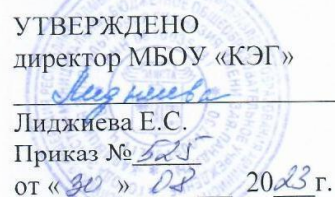 УТВЕРЖДЕНО
директор МБОУ «КЭГ»
Лиджиева
Лиджиева Е.С.
Приказ № 525
от « 30 » 08 2023 г.